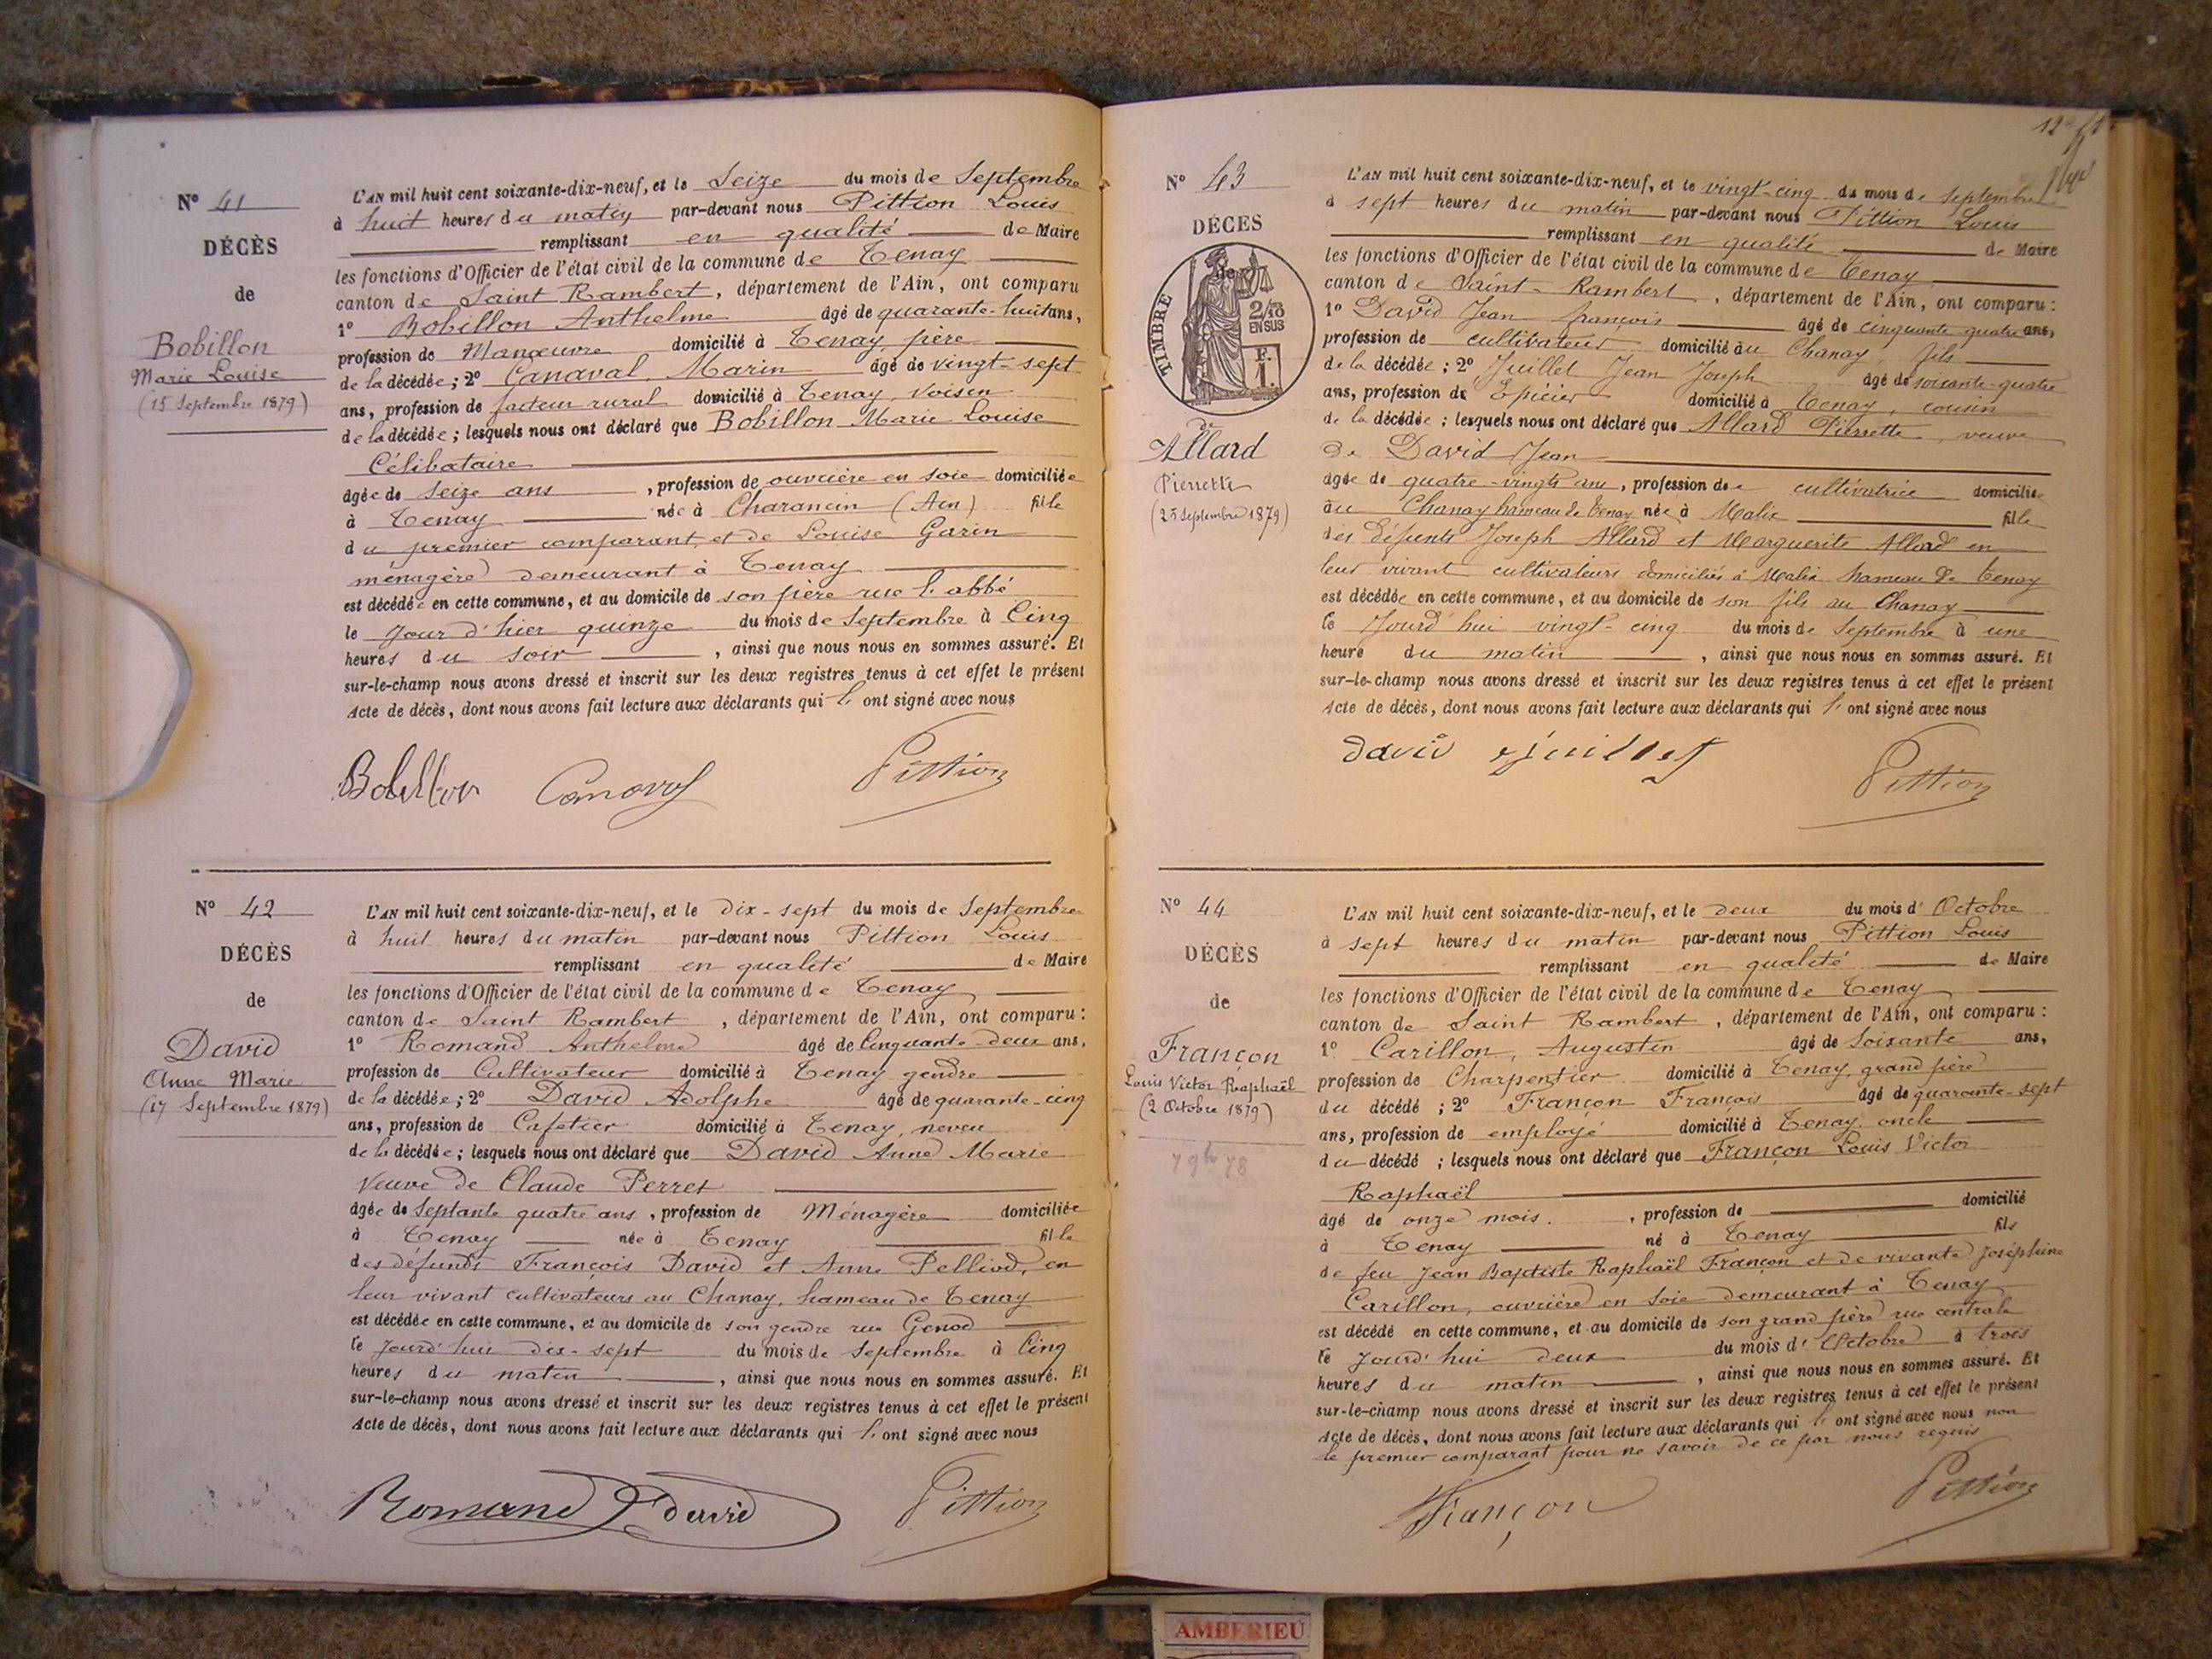 N° 41
DÉCÈS
de
Bobillon
Marie Louise
(15 Septembre 1879)
L'AN mil huit cent soixante-dix-neuf, et le Seize du mois de Septembre
à huit heures du matin par-devant nous Pittion Louis
remplissant en qualité de Maire
les fonctions d'Officier de l'état civil de la commune de Tenay
canton de Saint Rambert, département de l'Ain, ont comparu
1° Bobillon Anthelme âgé de quarante-huit ans,
profession de Manœuvre domicilié à Tenay, père
de la décédée; 2° Canaval, Marin âgé de vingt-sept
ans, profession de facteur rural domicilié à Tenay, voisin
de la décédée; lesquels nous ont déclaré que Bobillon Marie Louise
Célibataire
âgée de seize ans, profession de ouvrière en soie domiciliée
à Tenay née à Charancin (Ain) fille
du premier comparant, et de Louise Garin
ménagère demeurant à Tenay
est décédée en cette commune, et au domicile de son père rue l'abbé
le jour d'hier quinze du mois de Septembre à Cinq
heures du soir, ainsi que nous nous en sommes assuré. Et
sur-le-champ nous avons dressé et inscrit sur les deux registres tenus à cet effet le présent
Acte de décès, dont nous avons fait lecture aux déclarants qui l' ont signé avec nous
Bobillon Canaval Pittion
N° 42
DÉCÈS
de
David
Anne Marie
(17 Septembre 1879)
L'AN mil huit cent soixante-dix-neuf, et le dix-sept du mois de Septembre
à huit heures du matin par-devant nous Pittion Louis
remplissant en qualité de Maire
les fonctions d'Officier de l'état civil de la commune de Tenay
canton de Saint Rambert, département de l'Ain, ont comparu:
1° Romand Anthelme âgé de Cinquante-deux ans,
profession de Cultivateur domicilié à Tenay gendre
de la décédée; 2° David Adolphe âgé de quarante-cinq
ans, profession de Cafetier domicilié à Tenay, neveu
de la décédée; lesquels nous ont déclaré que David Anne Marie
Veuve de Claude Perret
âgée de Septante quatre ans, profession de Ménagère domiciliée
à Tenay née à Tenay fille
des défunts François David et Anne Pelliod, en
leur vivant cultivateurs au Chanay, hameau de Tenay
est décédée en cette commune, et au domicile de son gendre rue Genod
le jourd'hui dix-sept du mois de Septembre à Cinq
heures du matin, ainsi que nous nous en sommes assuré. Et
sur-le-champ nous avons dressé et inscrit sur les deux registres tenus à cet effet le présent
Acte de décès, dont nous avons fait lecture aux déclarants qui l' ont signé avec nous
Romand David Pittion
N° 43
DÉCÈS
TIMBRE
2/10
EN SUS
F.
1.
de
Allard
Pierrette
(25 Septembre 1879)
L'AN mil huit cent soixante-dix-neuf, et le vingt-cinq du mois de Septembre
à sept heures du matin par-devant nous Pittion Louis
remplissant en qualité de Maire
les fonctions d'Officier de l'état civil de la commune de Tenay
canton de Saint-Rambert, département de l'Ain, ont comparu:
1° David Jean françois âgé de cinquante quatre ans,
profession de cultivateur domicilié au Chanay fils
de la décédée; 2° Juillet Jean Joseph âgé de soixante-quatre
ans, profession de Epicier domicilié à Tenay, cousin
de la décédée; lesquels nous ont déclaré que Allard Pierrette, veuve
de David Jean
âgée de quatre-vingts ans, profession de cultivatrice domiciliée
au Chanay hameau de Tenay née à Malix fille
des défunts Joseph Allard et Marguerite Allard en
leur vivant cultivateurs domiciliés à Malix hameau de Tenay
est décédée en cette commune, et au domicile de son fils au Chanay
le jourd'hui vingt-cinq du mois de Septembre à une
heure du matin, ainsi que nous nous en sommes assuré. Et
sur-le-champ nous avons dressé et inscrit sur les deux registres tenus à cet effet le présent
Acte de décès, dont nous avons fait lecture aux déclarants qui l' ont signé avec nous
david juillet Pittion
N° 44
DÉCÈS
de
Françon
Louis Victor Raphaël
(2 Octobre 1879)
7 9bre 78
L'AN mil huit cent soixante-dix-neuf, et le deux du mois d'Octobre
à sept heures du matin par-devant nous Pittion Louis
remplissant en qualité de Maire
les fonctions d'Officier de l'état civil de la commune de Tenay
canton de Saint Rambert, département de l'Ain, ont comparu:
1° Carillon, Augustin âgé de Soixante ans,
profession de Charpentier domicilié à Tenay, grand père
du décédé; 2° Françon François âgé de quarante-sept
ans, profession de employé domicilié à Tenay, oncle
du décédé; lesquels nous ont déclaré que Françon Louis Victor
Raphaël
âgé de onze mois, profession de domicilié
à Tenay né à Tenay fils
de feu Jean Baptiste Raphaël Françon et de vivante Joséphine
Carillon, ouvrière en soie demeurant à Tenay
est décédé en cette commune, et au domicile de son grand père rue centrale
le jourd'hui deux du mois d'Octobre à trois
heures du matin, ainsi que nous nous en sommes assuré. Et
sur-le-champ nous avons dressé et inscrit sur les deux registres tenus à cet effet le présent
Acte de décès, dont nous avons fait lecture aux déclarants qui l' ont signé avec nous non
le premier comparant pour ne savoir de ce par nous requis
Françon Pittion
AMBERIEU